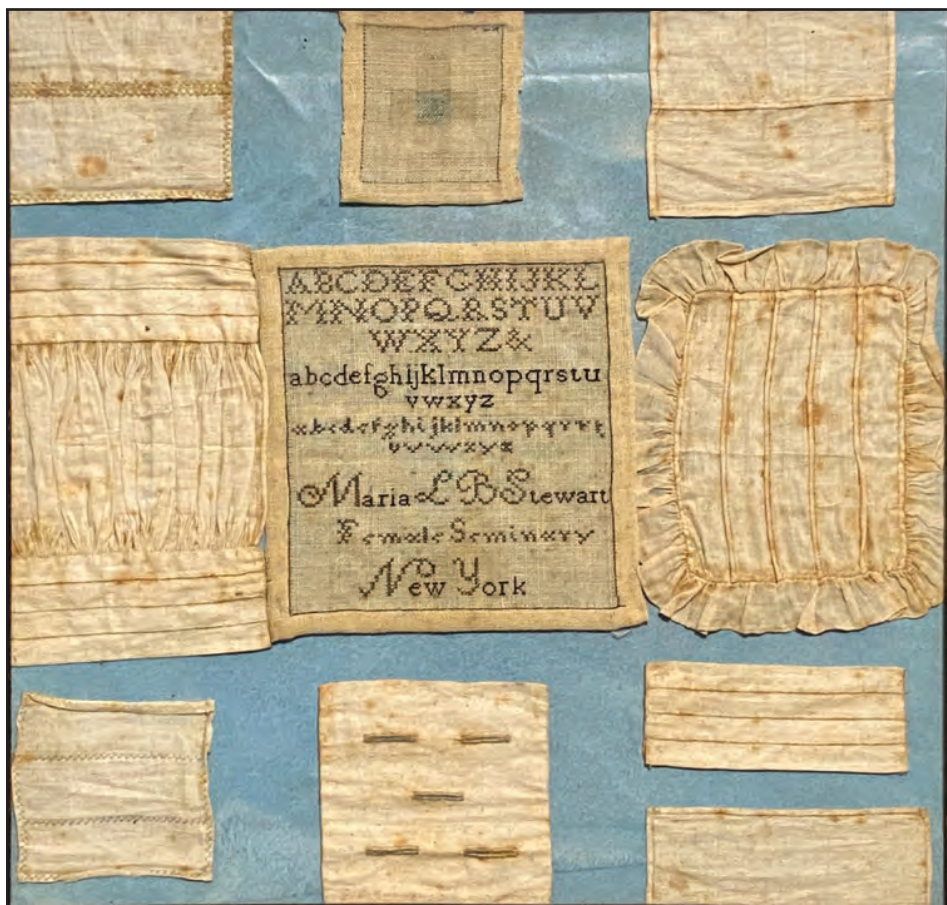 ABCDEFGHIJKL
MNOPQRSTUV
WXYZ&
abcdefghijklmnopqrstu
vwxyz
abcdefghijklmnopqrst
uvwxyz
Maria L B Stewart
Female Seminary
New York